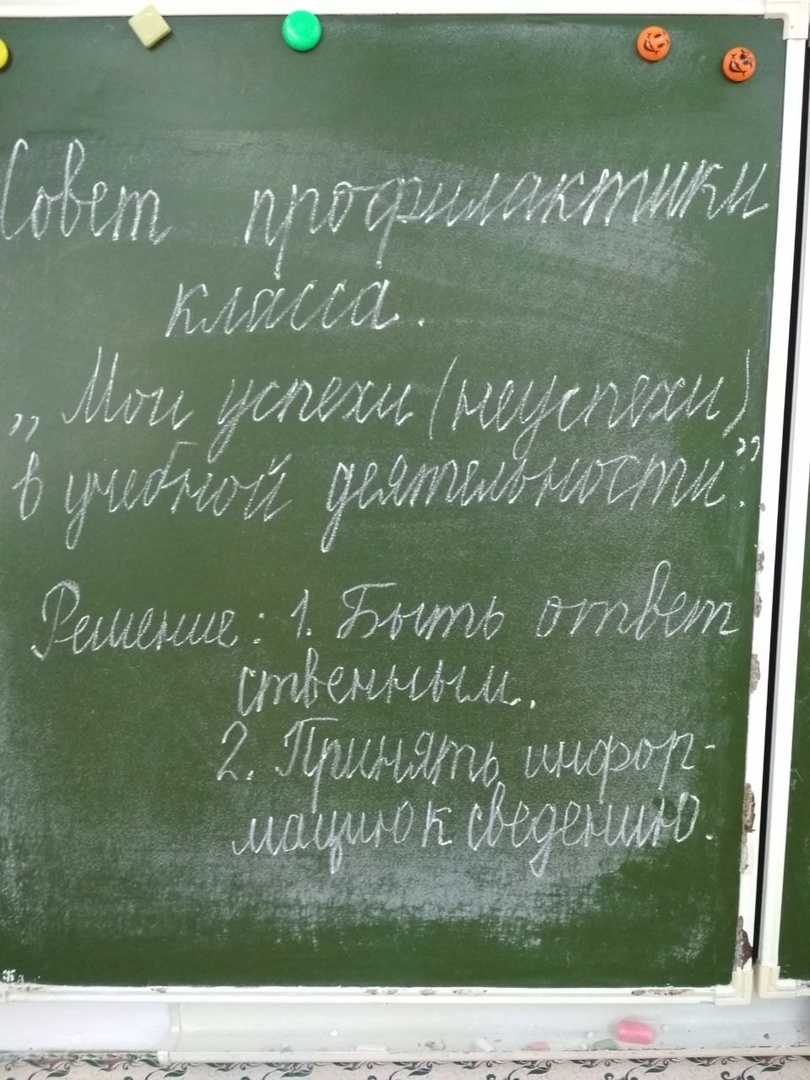 Совет профилактики
класса.
„Мои успехи (неуспехи)
в учебной деятельности”.
Решение: 1. Быть ответ
ственным.
2. Принять инфор-
мацию к сведению.